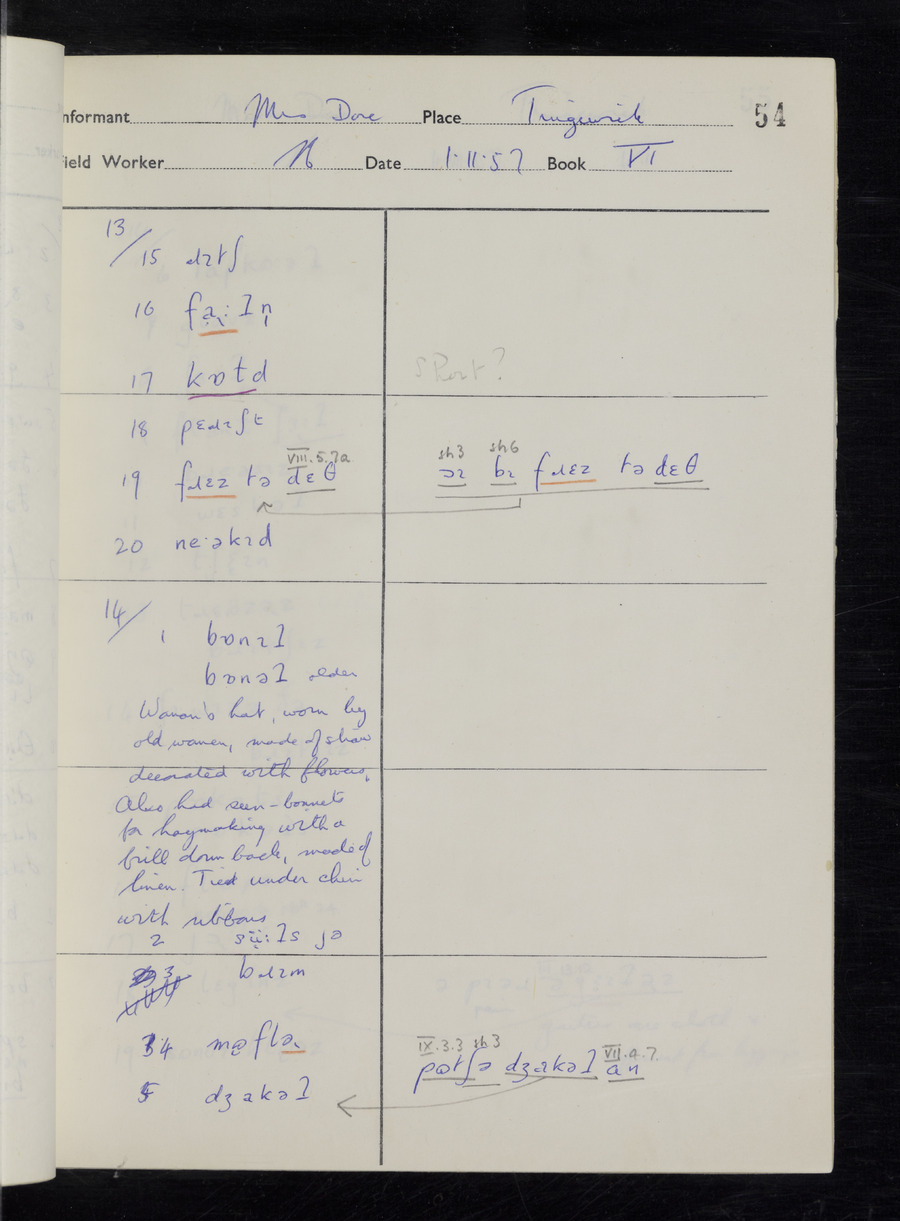 nformant Mrs Dore Place Tingewick 54
ield Worker N Date 1·11·57 Book VI
13/15 dɪtʃ
16 fəɻ:ʔn̩
17 kɒtd
sport?
18 pɛdɪʃt
VIII.5.7a sh3 sh6
19 fɹɛz tə dɛθ əɪ bɪ fɹɛz tə dɛθ
20 ne·əkɪd
14/1 bɒnɪʔ
bɒnəʔ older
Woman's hat, worn by
old women, made of straw
decorated with flowers.
Also had sun-bonnets
for haymaking with a
frill down back, made of
linen. Tied under chin
with ribbons
2 sü:ʔs jə
3 bɹɪm
IX.3.3 sh3 VII.4.7
4 mɐflə˞ pɷtʃə dʒakəʔ an
5 dʒakəʔ